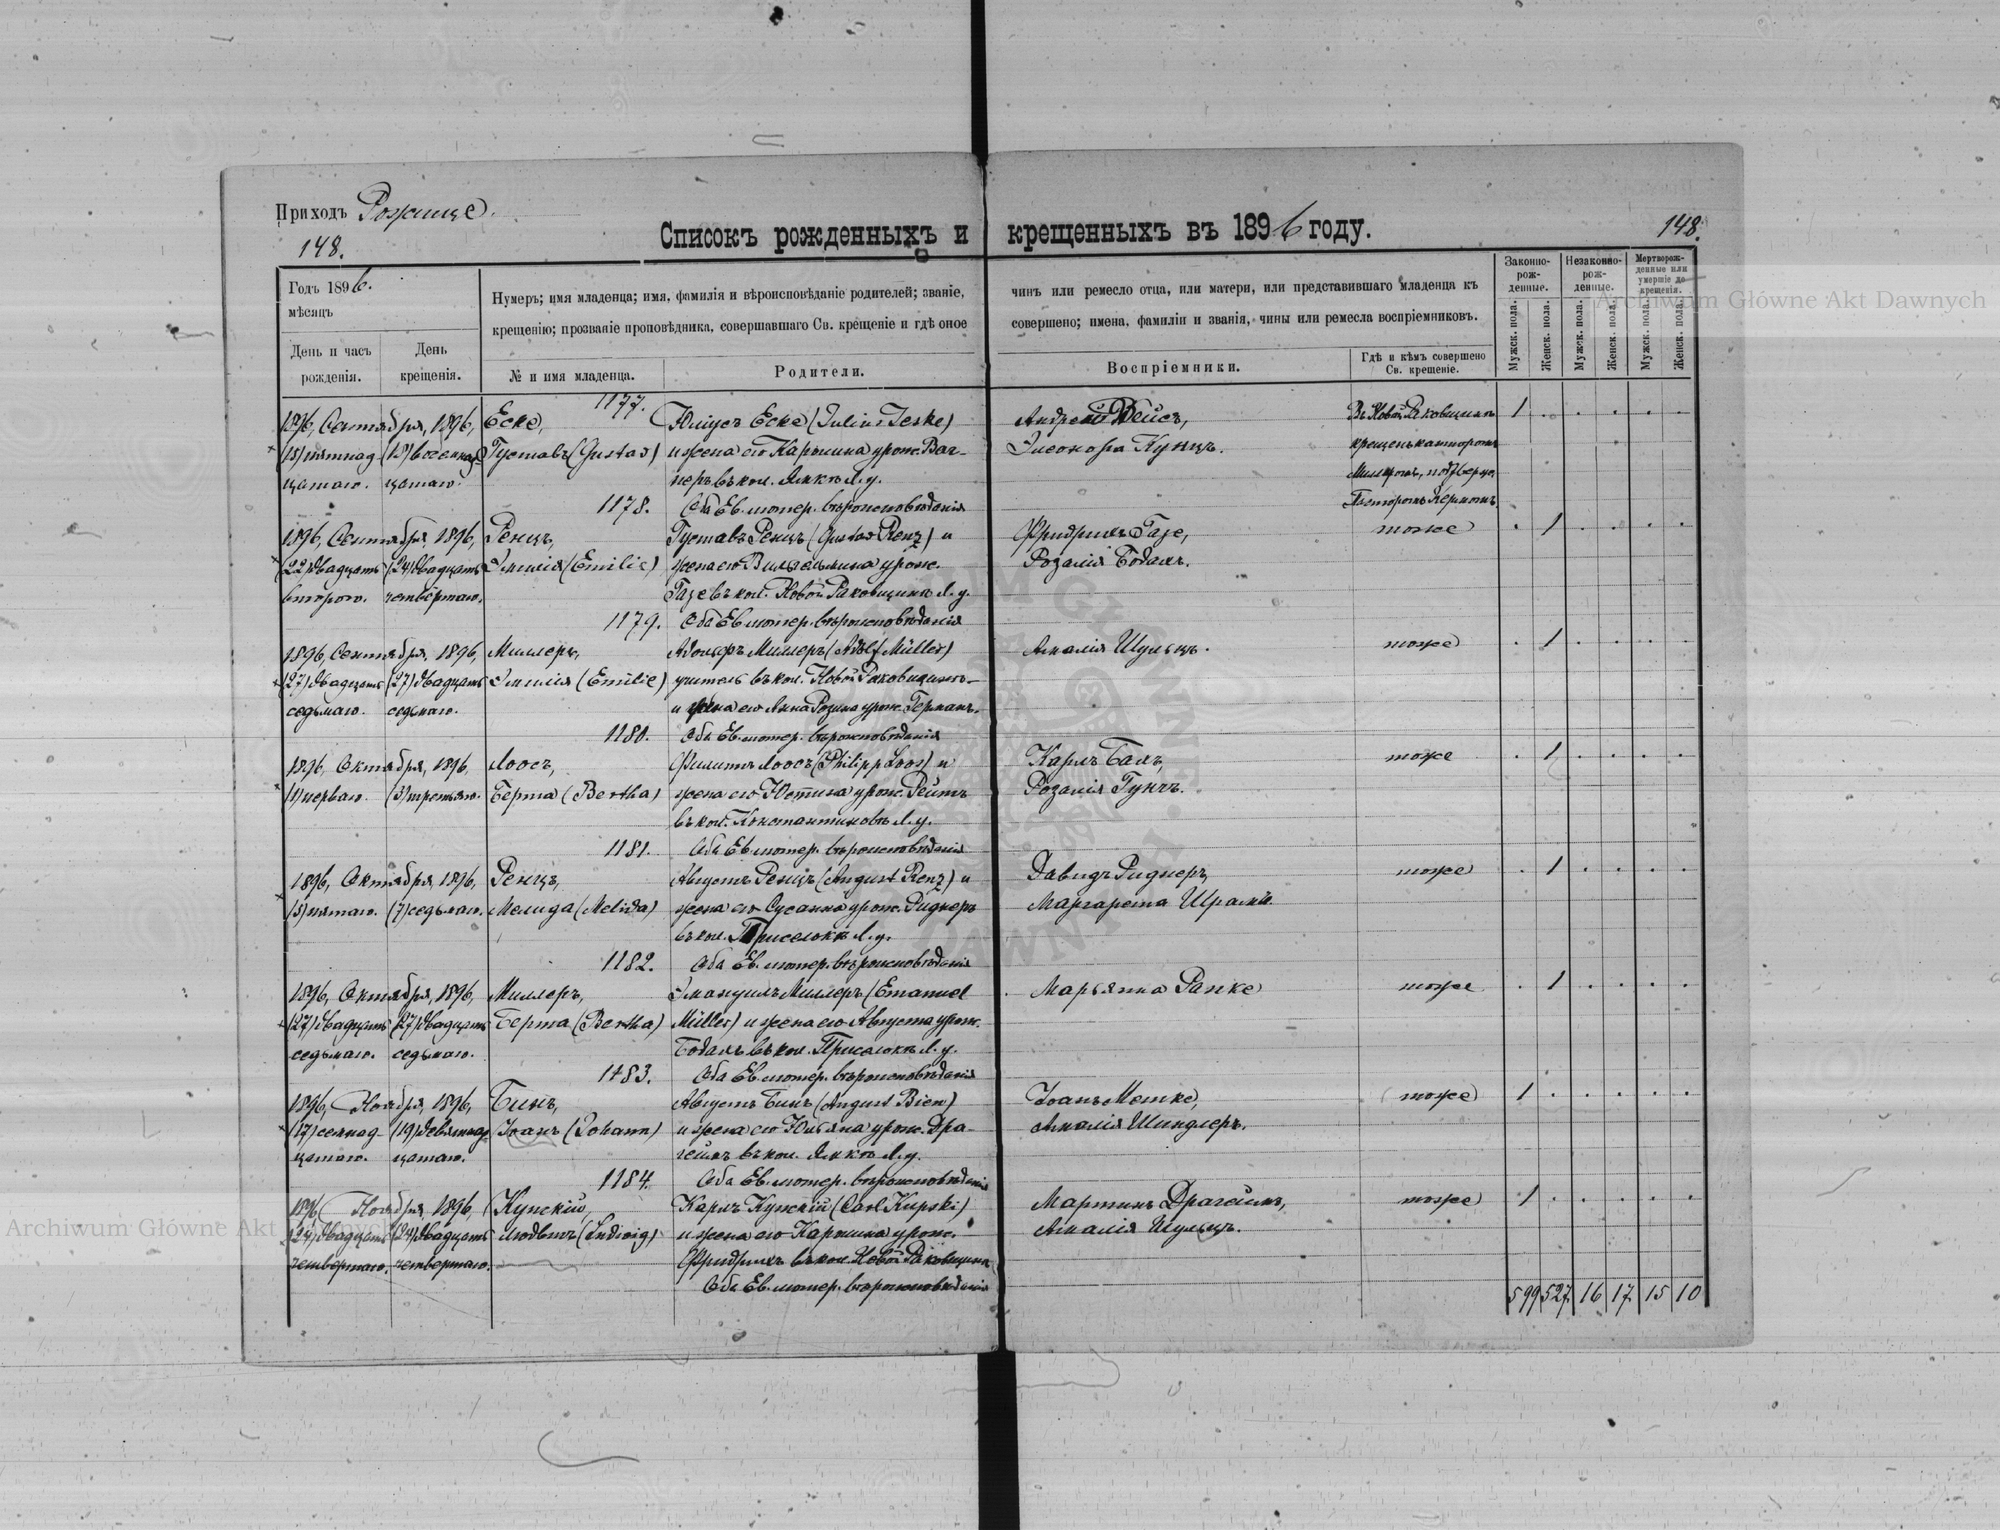 Приходъ Рожище.
148.
Списокъ рожденныхъ и крещенныхъ въ 1896 году.
148.
Годъ 1896.
мѣсяцъ
День и часъ рожденія.
День крещенія.
Нумеръ; имя младенца; имя, фамилія и вѣроисповѣданіе родителей; званіе, чинъ или ремесло отца, или матери, или представившаго младенца къ
крещенію; прозваніе проповѣдника, совершавшаго Св. крещеніе и гдѣ оное совершено; имена, фамиліи и званія, чины или ремесла воспріемниковъ.
№ и имя младенца.
Родители.
Воспріемники.
Гдѣ и кѣмъ совершено Св. крещеніе.
Законно-рож-денные.
Незаконно-рож-денные.
Мертворож-денные или умершіе до крещенія.
Мужск. пола.
Женск. пола.
Мужск. пола.
Женск. пола.
Мужск. пола.
Женск. пола.
1177.
1896, Сентября, 1896, Еске, Юліусъ Еске (Julius Jeske) Андрей Вейсъ, Въ Новой Раковщинѣ 1
(15) пятнад- (18) восемнад- Густавъ (Gustav) и жена его Каролина урож. Ваг- Элеонора Кунцъ. крещенъ канторомъ
цатаго. цатаго. неръ въ кол. Ямки Л. у. Миллеромъ, подтвержд.
1178. Оба Ев. лютер. вѣроисповѣданія Пасторомъ Керномъ
1896, Сентября, 1896, Ренцъ, Густавъ Ренцъ (Gustav Renz) и Фридрихъ Газе, тоже 1
(22) двадцать (24) двадцать Эмилія (Emilie) жена его Вильгельмина урож. Розалія Бодамъ.
второго. четвертаго. Газе въ кол. Новой Раковщинѣ Л. у.
1179. Оба Ев. лютер. вѣроисповѣданія
1896, Сентября, 1896, Миллеръ, Адольфъ Миллеръ (Adolf Müller) Амалія Шульцъ. тоже 1
(27) двадцать (27) двадцать Эмилія (Emilie) учитель въ кол. Новой Раковщинѣ
седьмаго. седьмаго. и жена его Анна Розина урож. Германъ.
1180. Оба Ев. лютер. вѣроисповѣданія
1896, Октября, 1896, Лоосъ, Филиппъ Лоосъ (Philipp Loos) и Карлъ Бамъ, тоже 1
(1) перваго. (3) третьяго. Берта (Bertha) жена его Юстина урож. Рейтъ Розалія Гунчъ.
въ кол. Константиновкѣ Л. у.
1181. Оба Ев. лютер. вѣроисповѣданія
1896, Октября, 1896, Ренцъ, Августъ Ренцъ (August Renz) и Давидъ Ридигеръ, тоже 1
(5) пятаго. (7) седьмаго. Мелида (Melida) жена его Сусанна урож. Ридигеръ Маргарета Шрамъ.
въ кол. Приселокъ Л. у.
1182. Оба Ев. лютер. вѣроисповѣданія
1896, Октября, 1896, Миллеръ, Эмануилъ Миллеръ (Emanuel Марьянна Ранке тоже 1
(27) двадцать (27) двадцать Берта (Bertha) Müller) и жена его Августа урож.
седьмаго. седьмаго. Бодамъ въ кол. Приселокъ Л. у.
1183. Оба Ев. лютер. вѣроисповѣданія
1896, Ноября, 1896, Бинъ, Августъ Бинъ (August Bien) Іоанъ Метке, тоже 1
(17) семнад- (19) девятнад- Іоанъ (Johann) и жена его Юльяна урож. Дра- Амалія Шиндлеръ.
цатаго. цатаго. геймъ въ кол. Ямки Л. у.
1184. Оба Ев. лютер. вѣроисповѣданія
1896, Ноября, 1896, Купскій, Карлъ Купскій (Carl Kupski) Мартинъ Драгеймъ, тоже 1
(24) двадцать (24) двадцать Людвигъ (Ludwig) и жена его Каролина урож. Амалія Шульцъ.
четвертаго. четвертаго. Фридрихъ въ кол. Новой Раковщинѣ
Оба Ев. лютер. вѣроисповѣданія
599 527 16 17 15 10
Archiwum Główne Akt Dawnych
Archiwum Główne Akt Dawnych